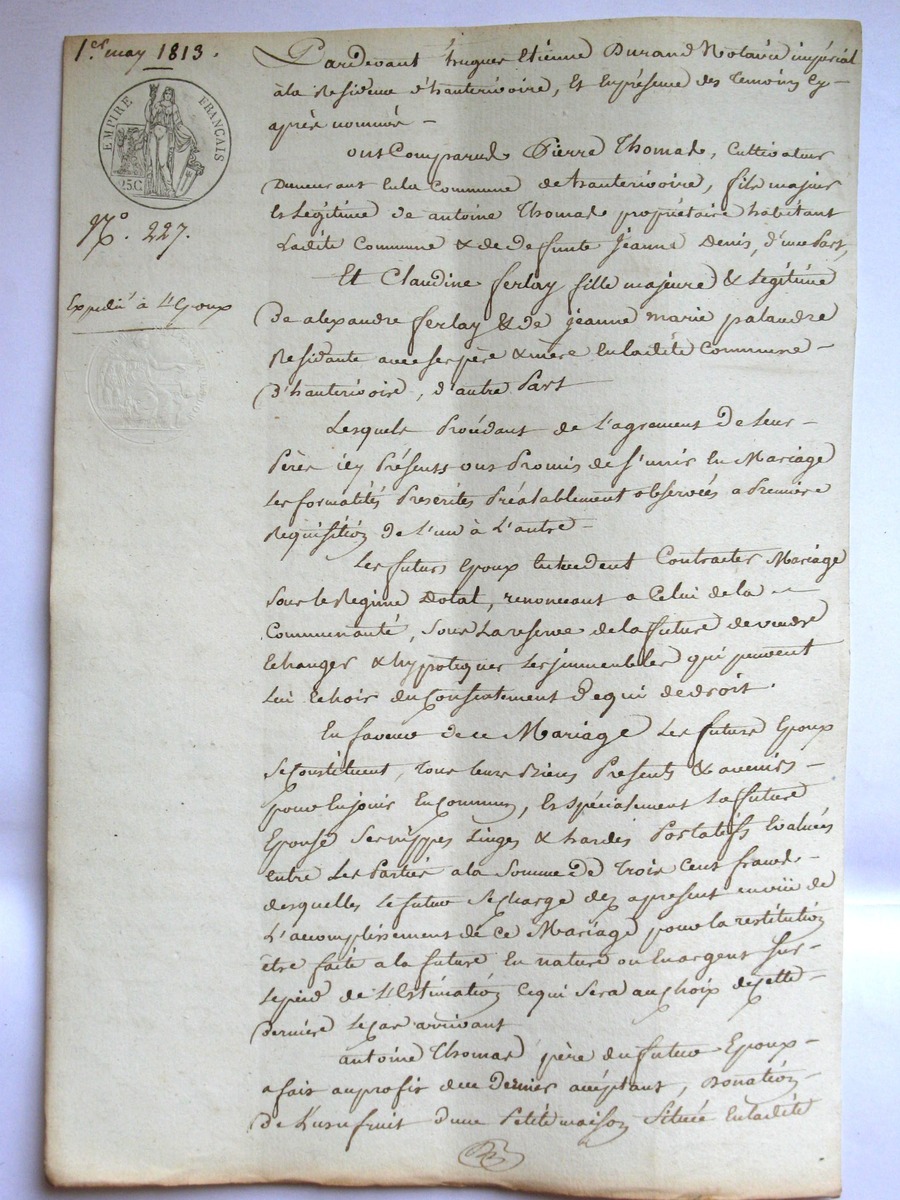 1er may 1813.
EMPIRE FRANÇAIS
25C
N°. 227.
Expedié à L'Epoux
Pardevant hugues Etienne Durand Notaire impérial
à la Residence d'hauterivoire, Et En présence des Temoins Cy-
après nommés -
ont Comparus Pierre Thomas, Cultivateur
Demeurant En la Commune de hauterivoire, fils majeur
Et Légitime de antoine Thomas propriétaire habitant
Ladite Commune & de defunte Jeanne Denis, d'une Part,
Et Claudine ferlay fille majeure & Legitime
De alexandre ferlay & de jeanne marie palandre
Residante avec ses père & mère En ladite Commune -
D'hauterivoire, d'autre Part
Lesquels Procédant de L'agrement De leurs -
Pères icy Présents ont Promis de s'unir En Mariage
Les formalités Prescrites Préalablement observées a Première
Requisition De L'un à L'autre -
Les futurs Epoux Entendent Contracter Mariage
sous le Regime Dotal, renonceant a Celui de la -
Communauté, sous La reserve de la future de vendre
Echanger & hypotequer Les immeubles qui peuvent
Lui Echoir du Consentement D'equi de droit.
En faveur de ce Mariage Les futurs Epoux
se Constituent, Tous leurs Biens Presents & avenirs -
pour En jouir En Commun, Et spécialement La future
Epouse ses nippes Linges & hardes Portatifs Evalués
entre Les Parties a la Somme De Trois Cent francs -
desquelles Le futur se charge dez apresent en vüe de
L'acomplissement de ce Mariage pour la restitution
être faite a la future En nature ou En argent sur -
Le pied de L'Estimation Ce qui sera au choix de cette -
Derniere Le Cas arrivant
antoine Thomas père du futur Epoux -
a fait au profit de ce Dernier acceptant, Donation -
De L'usufruit d'une Petite maison Située En ladite